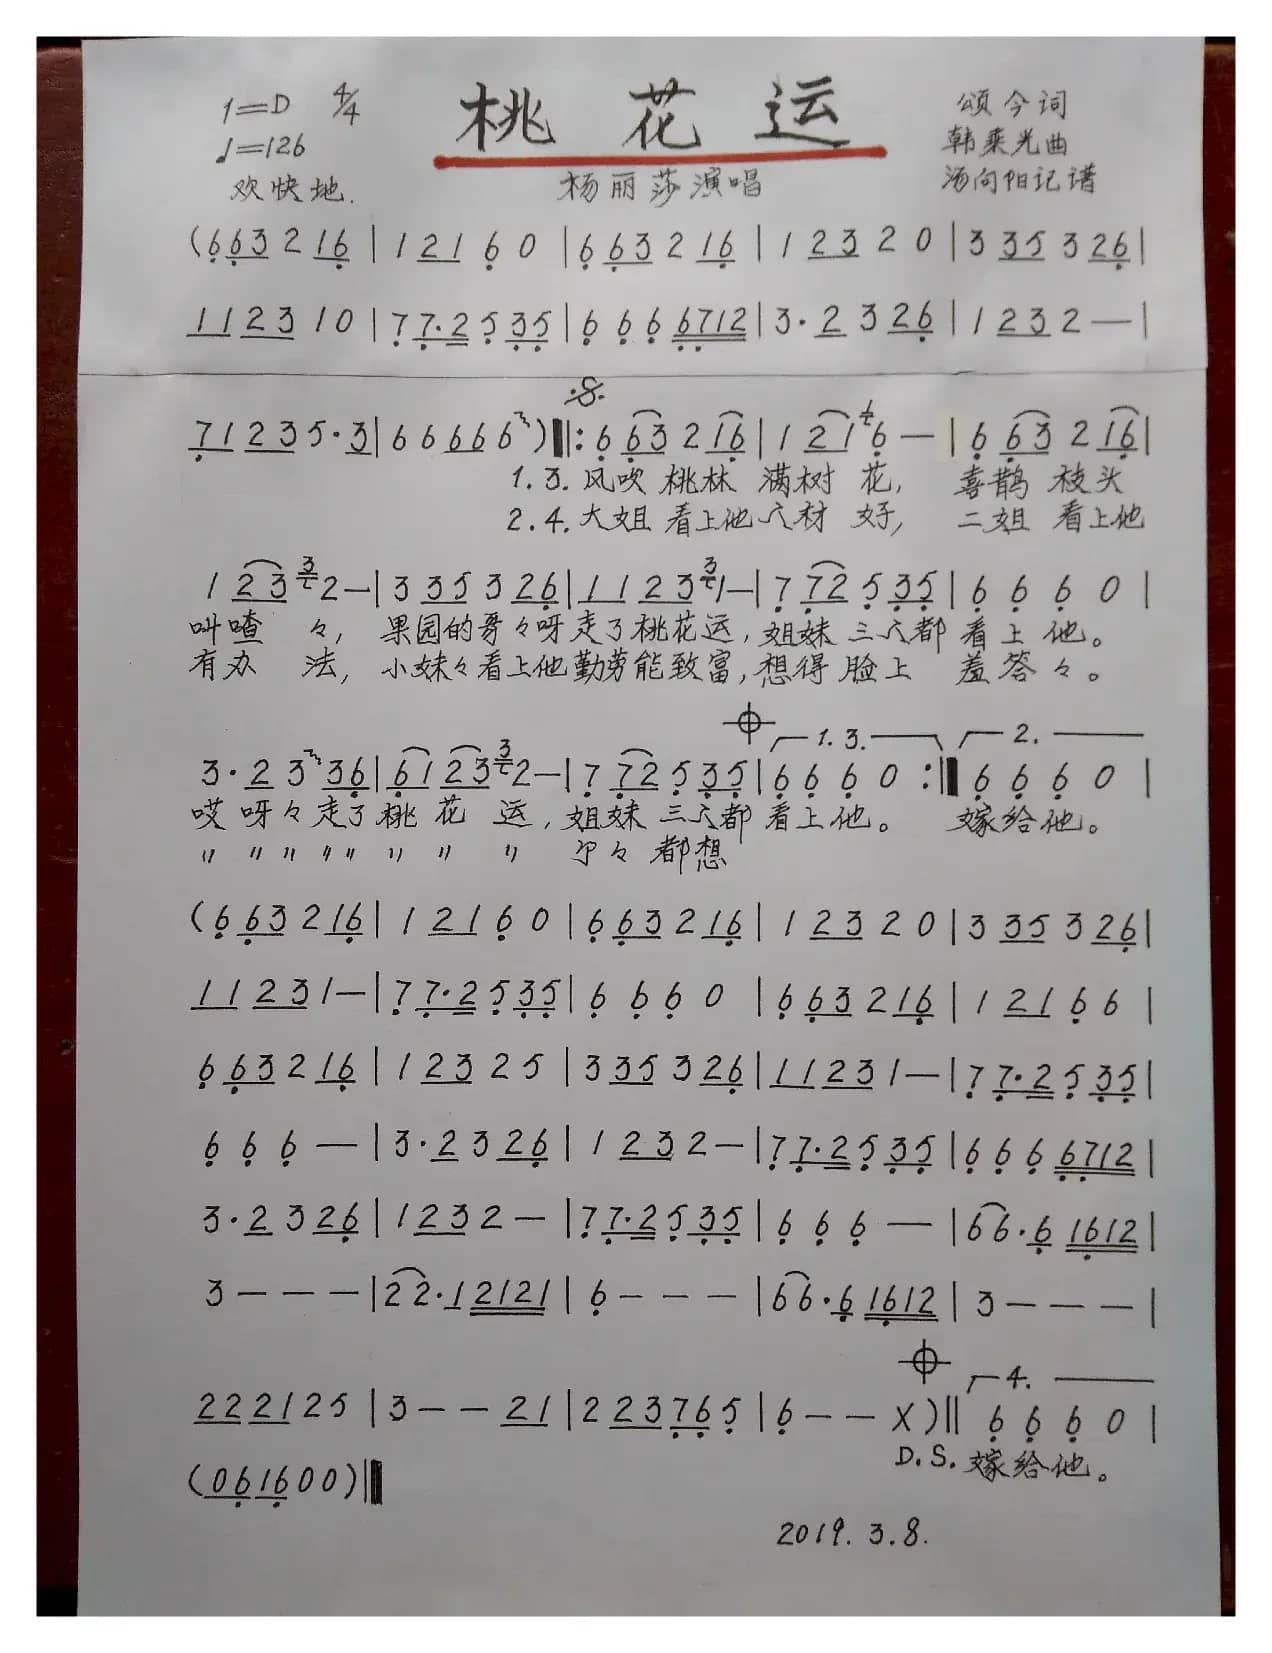 1=D 4/4 桃花运 颂今词
♩=126 韩乘光曲
欢快地. 杨丽莎演唱 汤向阳记谱
(6 63 2 16 | 1 21 6 0 | 6 63 2 16 | 1 23 2 0 | 3 35 3 26 |
11 23 1 0 | 7 7·2 5 35 | 6 6 6 6712 | 3·2 3 26 | 1 23 2 — |
71 23 5·3 | 6 6 66 6 ) ‖: 6 63 2 16 | 1 21 6 — | 6 63 2 16 |
1.3. 风吹 桃林 满树 花, 喜鹊 枝头
2.4. 大姐 看上他人材 好, 二姐 看上他
1 23 3 2 — | 3 35 3 26 | 11 23 3 1 — | 7 72 5 35 | 6 6 6 0 |
叫喳 々, 果园的哥々呀走了桃花运, 姐妹 三人都 看上他。
有办 法, 小妹々看上他勤劳能致富, 想得 脸上 羞答々。
1.3. 2.
3·2 3 36 | 61 23 3 2 — | 7 72 5 35 | 6 6 6 0 :‖ 6 6 6 0 |
哎 呀々走了 桃花 运, 姐妹 三人都 看上他。 嫁给他。
〃 〃 〃 〃 〃 〃 〃 〃 个々 都想
(6 63 2 16 | 1 21 6 0 | 6 63 2 16 | 1 23 2 0 | 3 35 3 26 |
11 23 1 — | 7 7·2 5 35 | 6 6 6 0 | 6 63 2 16 | 1 21 6 6 |
6 63 2 16 | 1 23 2 5 | 3 35 3 26 | 11 23 1 — | 7 7·2 5 35 |
6 6 6 — | 3·2 3 26 | 1 23 2 — | 7 7·2 5 35 | 6 6 6 6712 |
3·2 3 26 | 1 23 2 — | 7 7·2 5 35 | 6 6 6 — | 6 6·6 1612 |
3 — — — | 2 2·1 2121 | 6 — — — | 6 6·6 1612 | 3 — — — |
4.
22 21 2 5 | 3 — — 21 | 2 23 76 5 | 6 — — X ) ‖ 6 6 6 0 |
D.S. 嫁给他。
(06 16 0 0 ) ‖
2019. 3. 8.